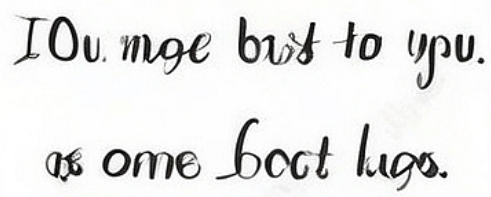 IOu. moe bust to ypu.
os ome boct lugs.